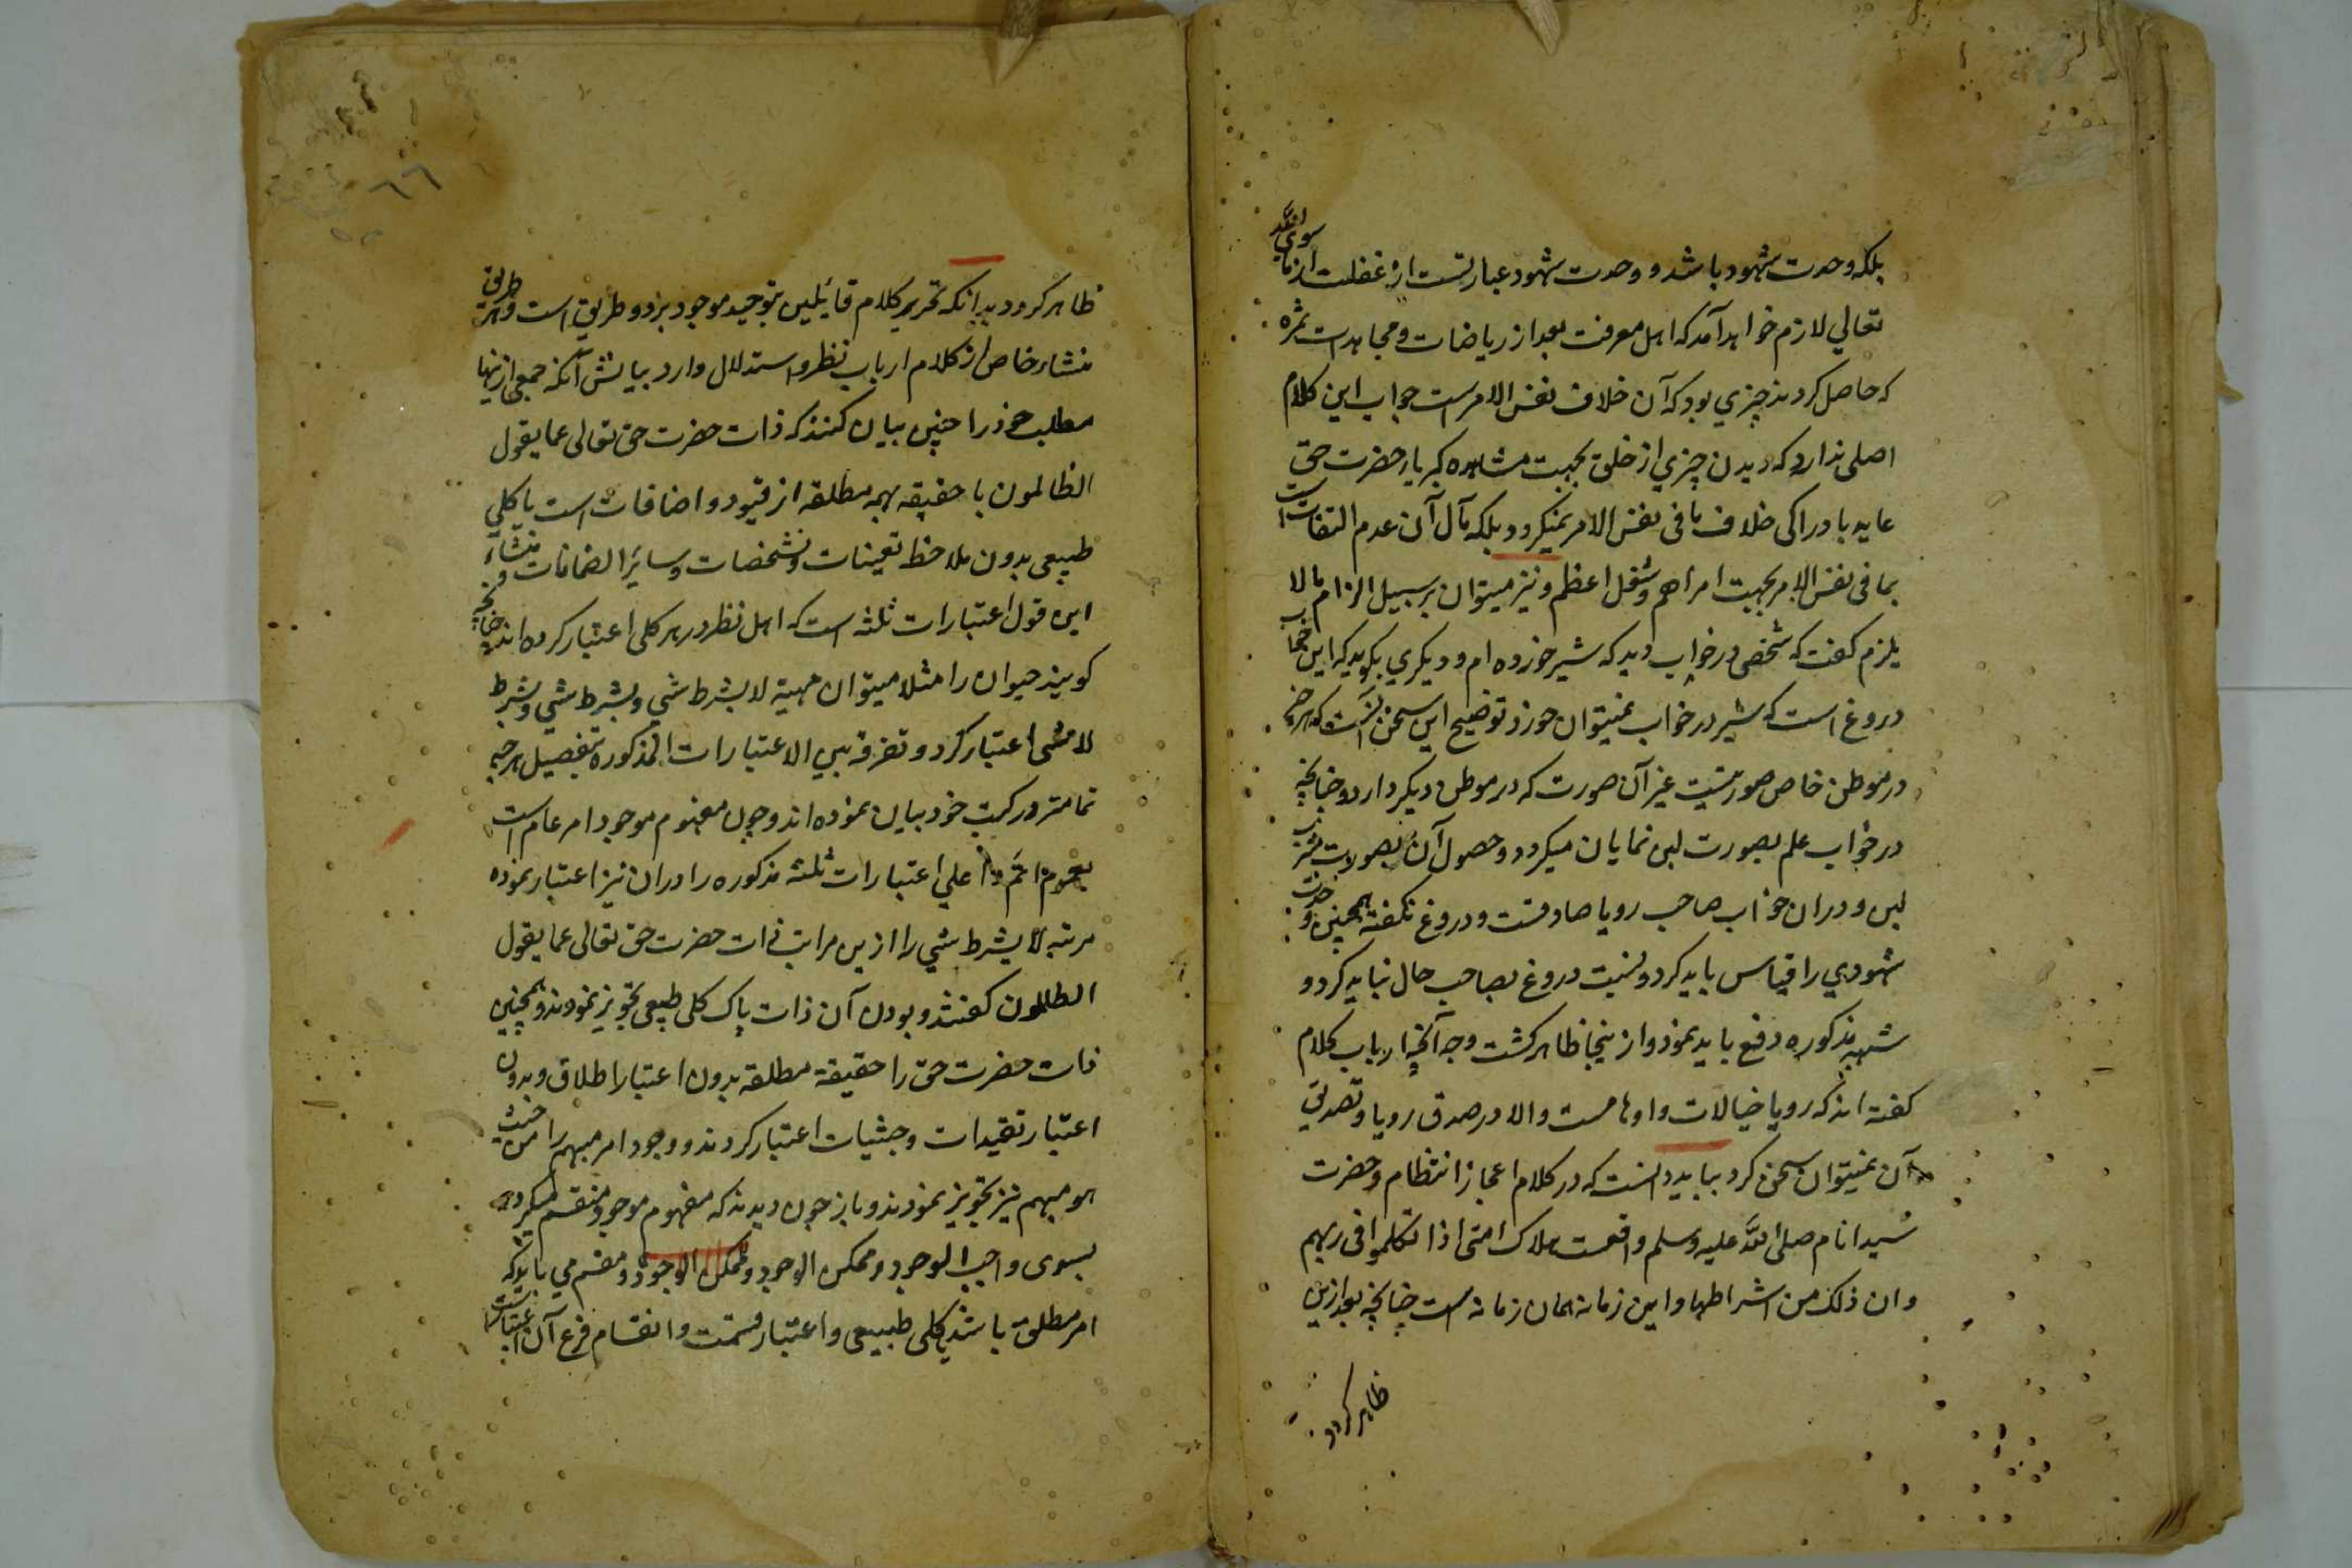 بلکه وحدت شهود باشد و وحدت شهود عبارتست از غفلت از ما سوی الله
تعالی لازم خواهد آمد که اهل معرفت بعد از ریاضات و مجاهدات ثمره
که حاصل کردند چیزي بود که آن خلاف نفس الامر است جواب این کلام
اصلی ندارد که دیدن چیزي از خلق بجهت مشاهده کبریاء حضرت حق
عاید بادراکی خلاف ما فی نفس الامر نمیکردد بلکه مآل آن عدم التفات است
بما فی نفس الامر بجهت امر اهم و شغل اعظم و نیز میتوان بر سبیل الزام بما لا
یلزم کفت که شخصی در خواب دید که شیر خورده ام و دیکري بکوید که این
دروغ است که شیر در خواب نمیتوان خورد توضیح این سخن آنست که هر چیز
در موطن خاص صورتیست غیر آن صورت که در موطن دیکر دارد و چنانچه
در خواب علم بصورت لبن نمایان میکردد و حصول آن بصورت شرب
لبن و در ان خواب صاحب رویا صادقست و دروغ نکفته همچنین وحدت
شهودي را قیاس باید کرد و نسبت دروغ بصاحب حال نباید کرد و
شبهه مذکوره دفع باید نمود و از ینجا ظاهر کشت وجه آنچه ارباب کلام
کفته اند که رویا خیالات و اوهامست والا در صدق رویا و تصدیق
آن نمیتوان سخن کرد بباید دانست که در کلام اعجاز انتظام حضرت
سید انام صلی الله علیه وسلم واقعست هلاک امتی اذا تکلموا فی ربهم
وان ذلک من اشراطها و این زمانه همان زمانه است چنانچه بعد ازین
ظاهر کردد
٦٦
ظاهر کردد بدانکه تحریر کلام قائلین بتوحید موجود بر دو طریق است و هر طریق
منشاء خاص از کلام ارباب نظر و استدلال دارد بیانش آنکه جمعی ازینها
مطلب خود را چنین بیان کنند که ذات حضرت حق تعالی عما یقول
الظالمون یا حقیقه مبهمه مطلقه از قیود و اضافات است یا کلي
طبیعی بدون ملاحظ تعینات و تشخصات و سایر انضمامات و منشاء
این قول اعتبارات ثلثه است که اهل نظر در هر کلی اعتبار کرده اند چنانچه
کویند حیوان را مثلا میتوان مهیة لا بشرط شي و بشرط شي و بشرط
لا شی اعتبار کرد و تفرقه بین الاعتبارات المذکوره بتفصیل هر چه
تمامتر در کتب خود بیان نموده اند و چون مفهوم موجود امر عام است
بعموم اتم و اعلي اعتبارات ثلثه مذکوره را در ان نیز اعتبار نموده
مرتبه لا بشرط شي را ازین مراتب ذات حضرت حق تعالی عما یقول
الظالمون کفتند و بودن آن ذات پاک کلی طبیعی تجویز نمودند و همچنین
ذات حضرت حق را حقیقة مطلقه بدون اعتبار اطلاق و بدون
اعتبار تقیدات و حیثیات اعتبار کردند و وجود امر مبهم را من حیث
هو مبهم نیز تجویز نمودند و باز چون دیدند که مفهوم موجود منقسم میکردد
بسوی واجب الوجود و ممکن الوجود و ممکن الوجود و مقسم مي باید که
امر مطلق باشد یا کلی طبیعی و اعتبار قسمت و انقسام فرع آن اعتبار است